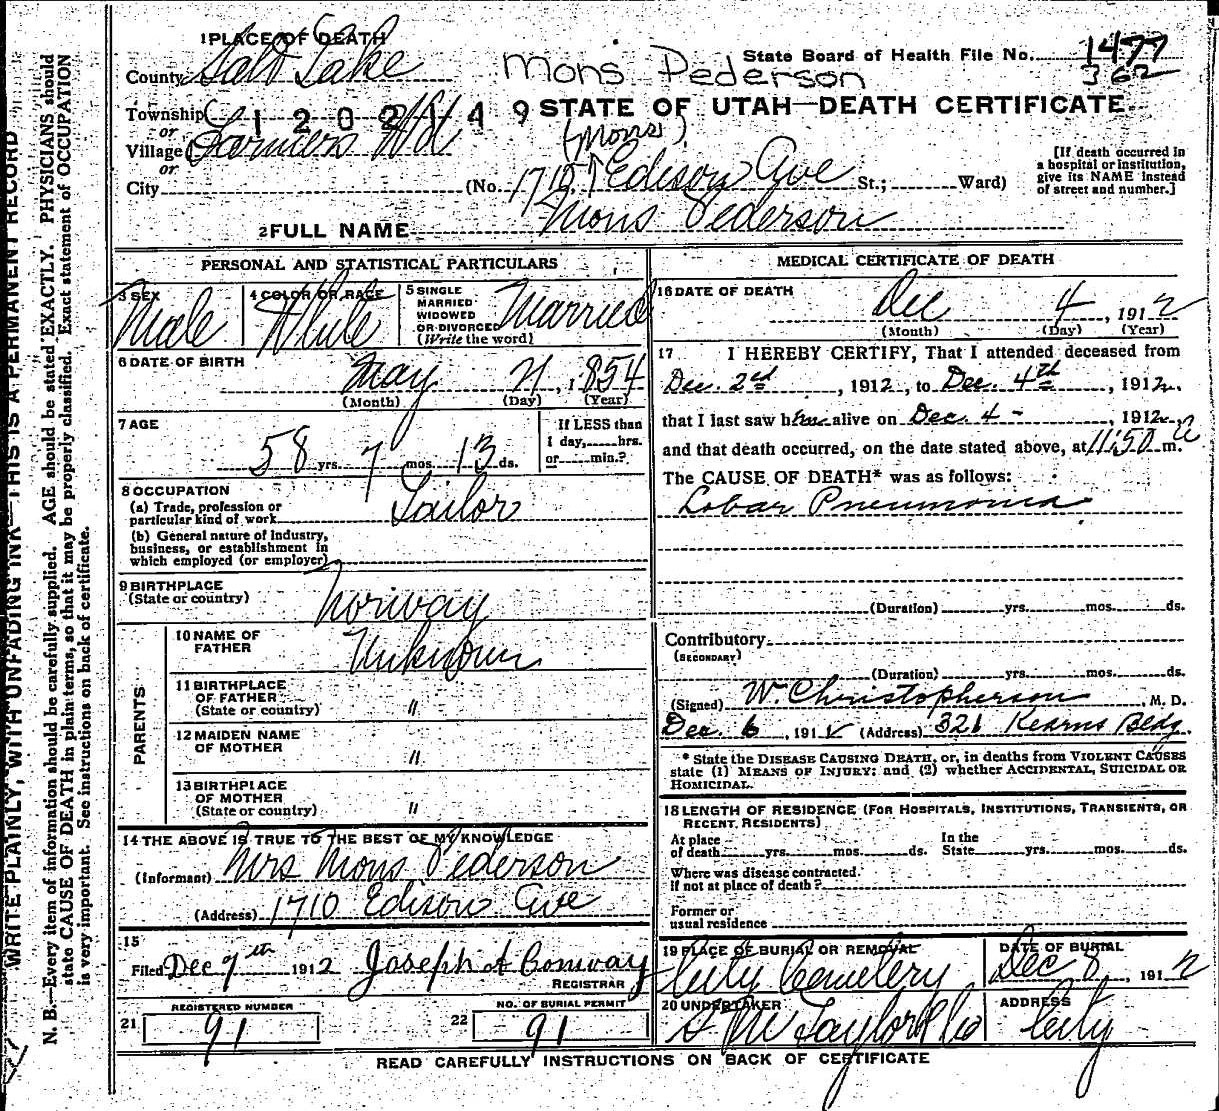 1 PLACE OF DEATH
County Salt Lake
Mons Pederson
State Board of Health File No. 1477
362
Township
1202149
STATE OF UTAH—DEATH CERTIFICATE
or
Village Farmers Wd
(Mons)
or
City (No. 1710 Edison Ave St.; Ward)
[If death occurred in
a hospital or institution,
give its NAME instead
of street and number.]
2 FULL NAME Mons Pederson
PERSONAL AND STATISTICAL PARTICULARS
3 SEX Male
4 COLOR OR RACE White
5 SINGLE
MARRIED
WIDOWED
OR DIVORCED
(Write the word)
Married
6 DATE OF BIRTH
May 21, 1854
(Month) (Day) (Year)
7 AGE
58 yrs. 7 mos. 13 ds.
If LESS than
1 day, hrs.
or min.?
8 OCCUPATION
(a) Trade, profession or
particular kind of work Tailor
(b) General nature of industry,
business, or establishment in
which employed (or employer)
9 BIRTHPLACE
(State or country) Norway
PARENTS
10 NAME OF
FATHER Unknown
11 BIRTHPLACE
OF FATHER
(State or country) "
12 MAIDEN NAME
OF MOTHER "
13 BIRTHPLACE
OF MOTHER
(State or country) "
14 THE ABOVE IS TRUE TO THE BEST OF MY KNOWLEDGE
(Informant) Mrs Mons Pederson
(Address) 1710 Edison Ave
15
Filed Dec 7th 1912 Joseph A Conway
REGISTRAR
REGISTERED NUMBER
21 91
NO. OF BURIAL PERMIT
22 91
MEDICAL CERTIFICATE OF DEATH
16 DATE OF DEATH
Dec 4, 1912
(Month) (Day) (Year)
17 I HEREBY CERTIFY, That I attended deceased from
Dec. 2nd, 1912, to Dec. 4th, 1912,
that I last saw him alive on Dec. 4 -, 1912
and that death occurred, on the date stated above, at 11:50 a m.
The CAUSE OF DEATH* was as follows:
Lobar Pneumonia
(Duration) yrs. mos. ds.
Contributory
(SECONDARY)
(Duration) yrs. mos. ds.
(Signed) W. Christopherson M. D.
Dec. 6, 1912 (Address) 321 Kearns Bldg.
* State the DISEASE CAUSING DEATH, or, in deaths from VIOLENT CAUSES
state (1) MEANS OF INJURY; and (2) whether ACCIDENTAL, SUICIDAL OR
HOMICIDAL.
18 LENGTH OF RESIDENCE (FOR HOSPITALS, INSTITUTIONS, TRANSIENTS, OR
RECENT RESIDENTS)
At place
of death yrs. mos. ds.
In the
State yrs. mos. ds.
Where was disease contracted
if not at place of death?
Former or
usual residence
19 PLACE OF BURIAL OR REMOVAL
City Cemetery
DATE OF BURIAL
Dec 8, 1912
20 UNDERTAKER
ADDRESS
City
READ CAREFULLY INSTRUCTIONS ON BACK OF CERTIFICATE
WRITE PLAINLY, WITH UNFADING INK—THIS IS A PERMANENT RECORD
N. B.—Every item of information should be carefully supplied. AGE should be stated EXACTLY. PHYSICIANS should
state CAUSE OF DEATH in plain terms, so that it may be properly classified. Exact statement of OCCUPATION
is very important. See instructions on back of certificate.